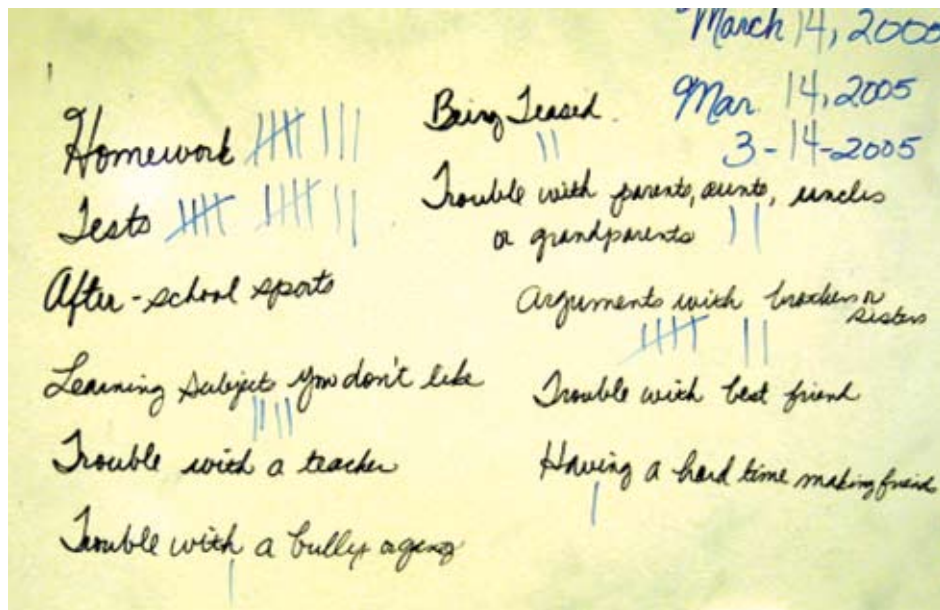 March 14, 2005
Mar. 14, 2005
3-14-2005
Homework
Tests
After-school sports
Learning Subjects you don't like
Trouble with a teacher
Trouble with a bully or gang
Being Teased.
Trouble with parents, aunts, uncles
or grandparents
Arguments with brothers or
sisters
Trouble with best friend
Having a hard time making friends